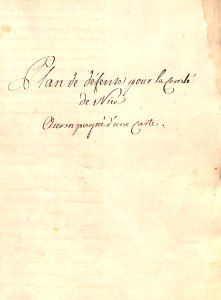 Plan de défense pour la Comté
de Nice
Accompagné d'une Carte.